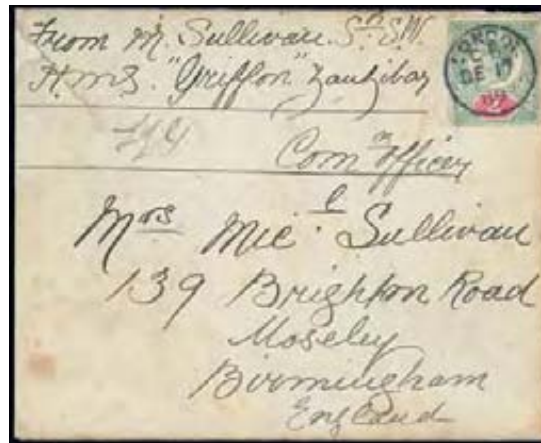 From M. Sullivan. Sᵗ SW.
H.M.S. "Griffon" Zanzibar
Com Officer
Mrs Micˡ Sullivan
139 Brighton Road
Moseley
Birmingham
England
LONDON
DE 17